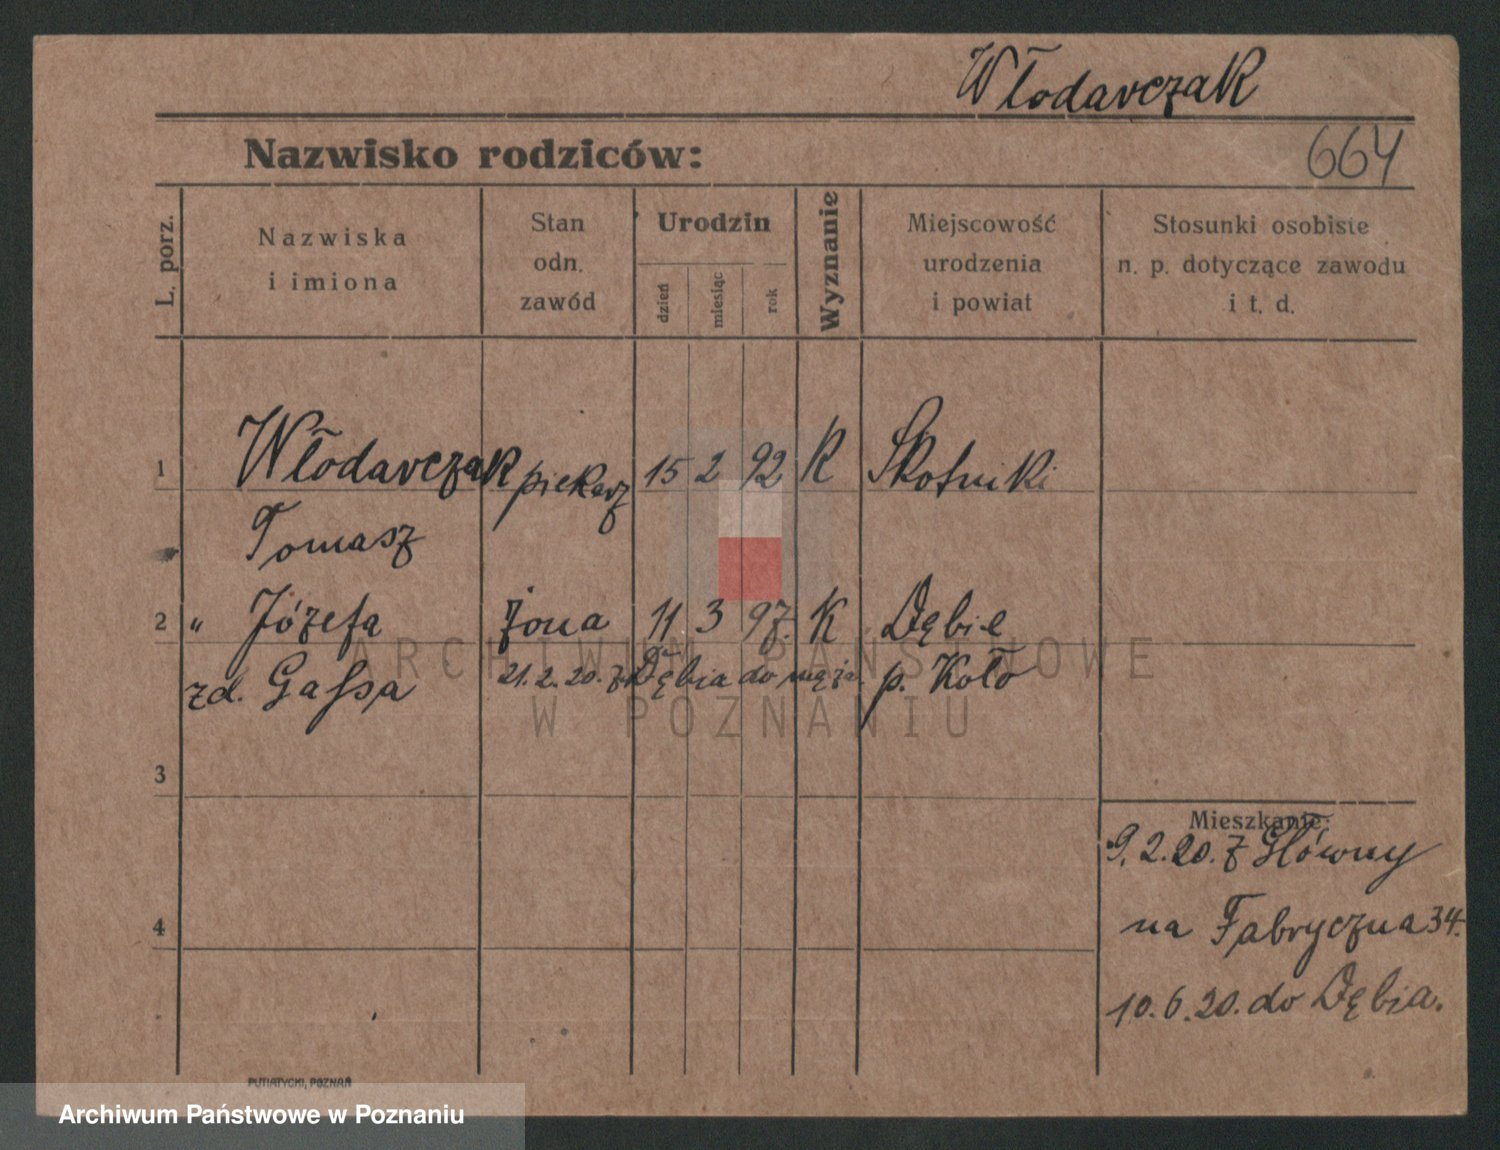 Włodarczak
Nazwisko rodziców:
664
L. porz.
Nazwiska
i imiona
Stan
odn.
zawód
Urodzin
dzień
miesiąc
rok
Wyznanie
Miejscowość
urodzenia
i powiat
Stosunki osobiste
n. p. dotyczące zawodu
i t. d.
1 Włodarczak piekarz 15 2 92 K Skotniki
Tomasz
2 " Józefa żona 11 3 97. K Dębie
zd. Gassa 21.2.20. z Dębia do męża. p. Koło
3
Mieszkanie:
9.2.20. z Główny
4
na Fabryczna 34.
10.6.20. do Dębia.
PUTIATYCKI, POZNAŃ
ARCHIWUM PAŃSTWOWE
W POZNANIU
Archiwum Państwowe w Poznaniu